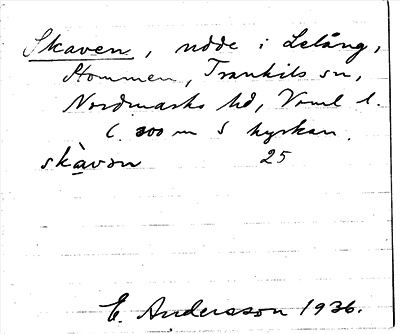 Skaven, udde i Lelång,
Stommen, Trankils sn,
Nordmarks hd, Vrml l.
C. 300 m S kyrkan.
skàvən 25
E. Andersson 1936.